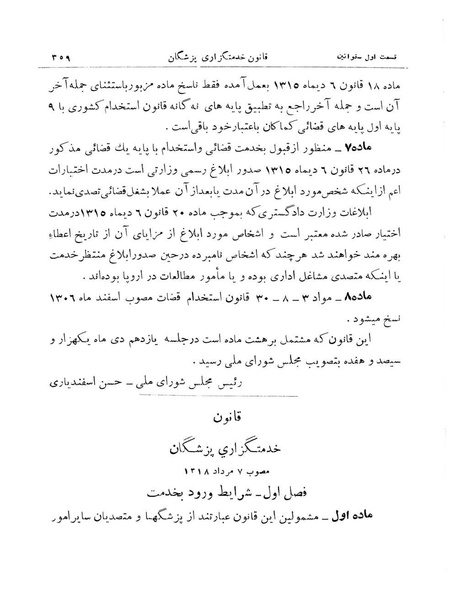 قسمت اول - قوانین
قانون خدمتگزاری پزشگان
۳۵۹
ماده ۱۸ قانون ۶ دیماه ۱۳۱۵ بعمل آمده فقط ناسخ ماده مزبور باستثنای جمله آخر
آن است و جمله آخر راجع به تطبیق پایه های نه گانه قانون استخدام کشوری با ۹
پایه اول پایه های قضائی کماکان باعتبار خود باقی است.
ماده۷ – منظور از قبول بخدمت قضائی و استخدام با پایه یك قضائی مذکور
درماده ۲۶ قانون ۶ دیماه ۱۳۱۵ صدور ابلاغ رسمی وزارتی است درمدت اختیارات
اعم از اینکه شخص مورد ابلاغ در آن مدت یا بعد از آن عملا بشغل قضائی تصدی نماید.
ابلاغات وزارت دادگستری که بموجب ماده ۲۰ قانون ۶ دیماه ۱۳۱۵ درمدت
اختیار صادر شده معتبر است و اشخاص مورد ابلاغ از مزایای آن از تاریخ اعطاء
بهره مند خواهند شد هر چند که اشخاص نامبرده درحین صدور ابلاغ منتظر خدمت
یا اینکه متصدی مشاغل اداری بوده و یا مأمور مطالعات در اروپا بوده‌اند .
ماده۸ – مواد ۳ – ۸ – ۳۰ قانون استخدام قضات مصوب اسفند ماه ۱۳۰۶
نسخ میشود .
این قانون که مشتمل بر هشت ماده است درجلسه یازدهم دی ماه یکهزار و
سیصد و هفده بتصویب مجلس شورای ملی رسید .
رئیس مجلس شورای ملی – حسن اسفندیاری
قانون
خدمتگزاری پزشگان
مصوب ۷ مرداد ۱۳۱۸
فصل اول – شرایط ورود بخدمت
ماده اول – مشمولین این قانون عبارتند از پزشگها و متصدیان سایر امور